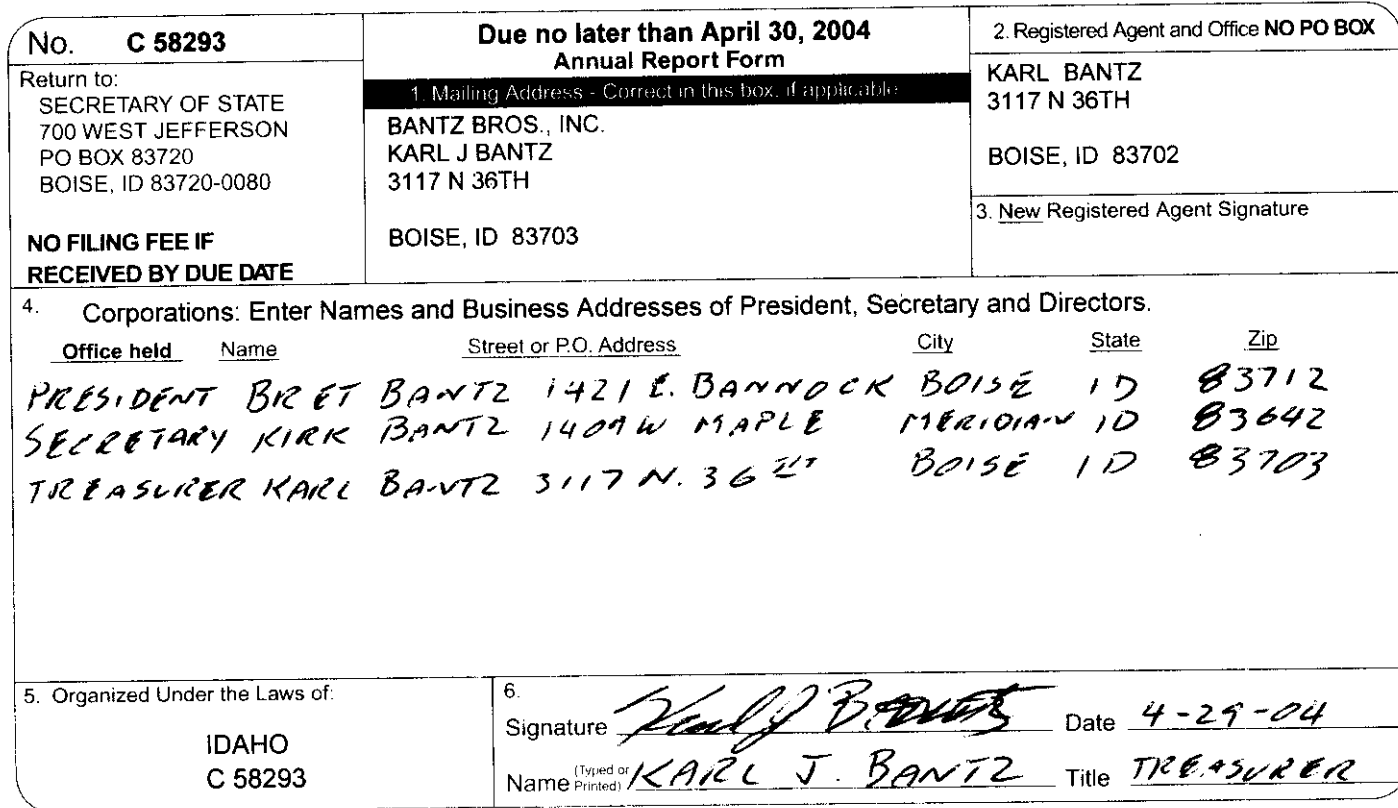 No. C 58293
Return to:
SECRETARY OF STATE
700 WEST JEFFERSON
PO BOX 83720
BOISE, ID 83720-0080
NO FILING FEE IF
RECEIVED BY DUE DATE
Due no later than April 30, 2004
Annual Report Form
1. Mailing Address - Correct in this box, if applicable
BANTZ BROS., INC.
KARL J BANTZ
3117 N 36TH
BOISE, ID 83703
2. Registered Agent and Office NO PO BOX
KARL BANTZ
3117 N 36TH
BOISE, ID 83702
3. New Registered Agent Signature
4. Corporations: Enter Names and Business Addresses of President, Secretary and Directors.
Office held Name Street or P.O. Address City State Zip
PRESIDENT BRET BANTZ 1421 E. BANNOCK BOISE ID 83712
SECRETARY KIRK BANTZ 1409 W MAPLE MERIDIAN ID 83642
TREASURER KARL BANTZ 3117 N. 36 BOISE ID 83703
5. Organized Under the Laws of:
IDAHO
C 58293
6.
Signature Karl J Bantz Date 4-29-04
Name (Typed or Printed) KARL J. BANTZ Title TREASURER